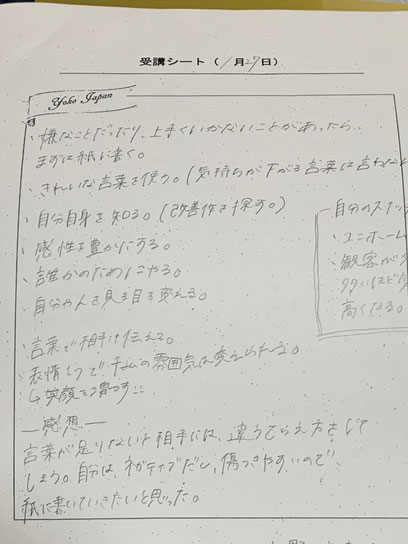 受講シート（1月27日）
Yoko Japan
・嫌なことだったり、上手くいかないことがあったら
まずは紙に書く。
・きれいな言葉を使う。（気持ちが下がる言葉は言わない
・自分自身を知る。（改善作を探す。）
・感性を豊かにする。
・誰かのためにやる。
・自分や人を見る目を変える。
・言葉で相手に伝える。
・表情1つでチームの雰囲気は変えられる。
↳笑顔を増やす
―感想―
言葉が足りないと相手には、違うとらえ方をして
しまう。自分は、ネガティブだし、傷つきやすいので
紙に書いていきたいと思った。
自分のスト
・ユニホーム
・観客が多
多いほど
高くなる。